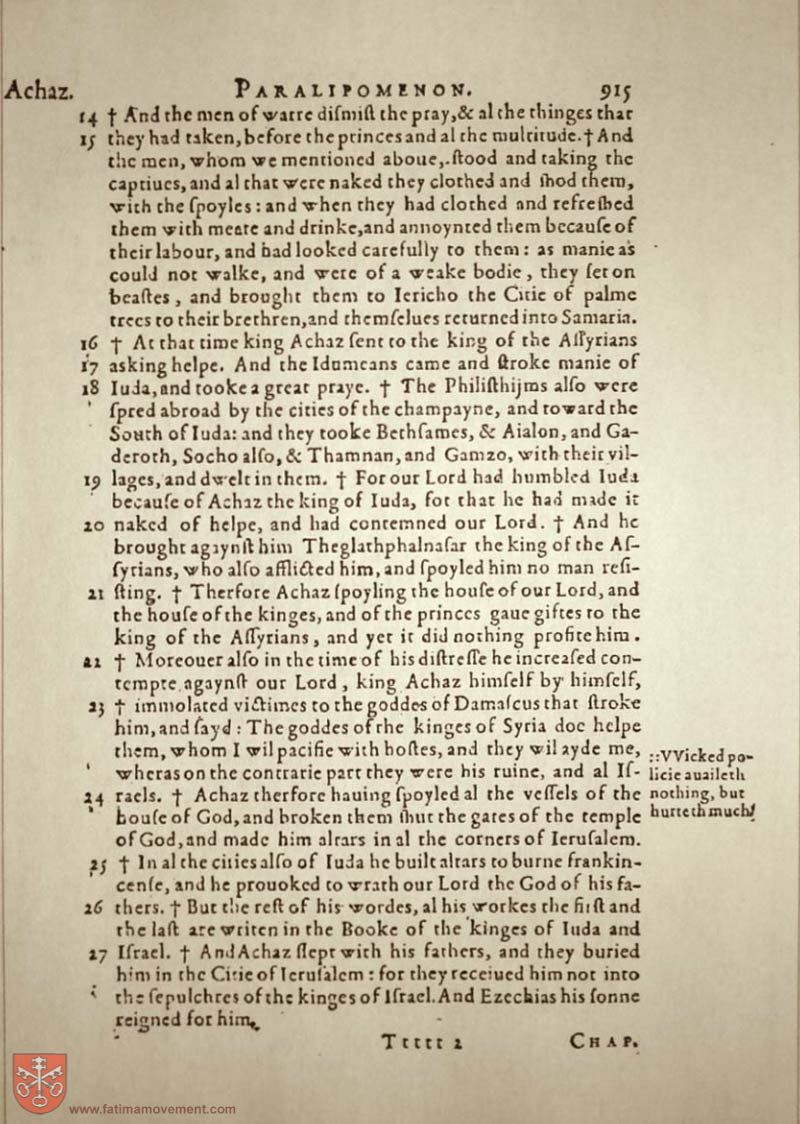 Achaz. PARALIPOMENON. 915
14 † And the men of warre diſmiſt the pray,& al the thinges that
15 they had taken, before the princes and al the multitude. † And
the men, whom we mentioned aboue,. ſtood and taking the
captiues, and al that were naked they clothed and ſhod them,
with the ſpoyles : and when they had clothed and refreſhed
them with meate and drinke,and annoynted them becauſe of
their labour, and had looked carefully to them : as manie as
could not walke, and were of a weake bodie , they ſet on
beaſtes , and brought them to Iericho the Citie of palme
trees to their brethren,and themſelues returned into Samaria.
16 † At that time king Achaz ſent to the king of the Aſſyrians
17 asking helpe. And the Idumeans came and ſtroke manie of
18 Iuda,and tooke a great praye. † The Philiſthijms alſo were
ſpred abroad by the cities of the champayne, and toward the
South of Iuda: and they tooke Bethſames, & Aialon, and Ga-
deroth, Socho alſo, & Thamnan, and Gamzo, with their vil-
19 lages, and dwelt in them. † For our Lord had humbled Iuda
becauſe of Achaz the king of Iuda, for that he had made it
20 naked of helpe, and had contemned our Lord. † And he
brought agaynſt him Theglathphalnaſar the king of the Aſ-
ſyrians, who alſo afflicted him, and ſpoyled him no man reſi-
21 ſting. † Therfore Achaz ſpoyling the houſe of our Lord, and
the houſe of the kinges, and of the princes gaue giftes to the
king of the Aſſyrians , and yet it did nothing profite him .
22 † Moreouer alſo in the time of his diſtreſſe he increaſed con-
tempte agaynſt our Lord , king Achaz himſelf by himſelf,
23 † immolated victimes to the goddes of Damaſcus that ſtroke
him, and ſayd : The goddes of the kinges of Syria doe helpe
them, whom I wil pacifie with hoſtes, and they wil ayde me,
wheras on the contrarie part they were his ruine, and al Iſ-
24 raels. † Achaz therfore hauing ſpoyled al the veſſels of the
houſe of God, and broken them ſhut the gates of the temple
of God, and made him altars in al the corners of Ieruſalem.
25 † In al the cities alſo of Iuda he built altars to burne frankin-
cenſe, and he prouoked to wrath our Lord the God of his fa-
26 thers. † But the reſt of his wordes, al his workes the firſt and
the laſt are writen in the Booke of the kinges of Iuda and
27 Iſrael. † And Achaz ſlept with his fathers, and they buried
him in the Citie of Ieruſalem : for they receiued him not into
the ſepulchres of the kinges of Iſrael. And Ezechias his ſonne
reigned for him.
::VVicked po-
licie auaileth
nothing, but
hurteth much.
Ttttt 2 CHAP.
www.fatimamovement.com